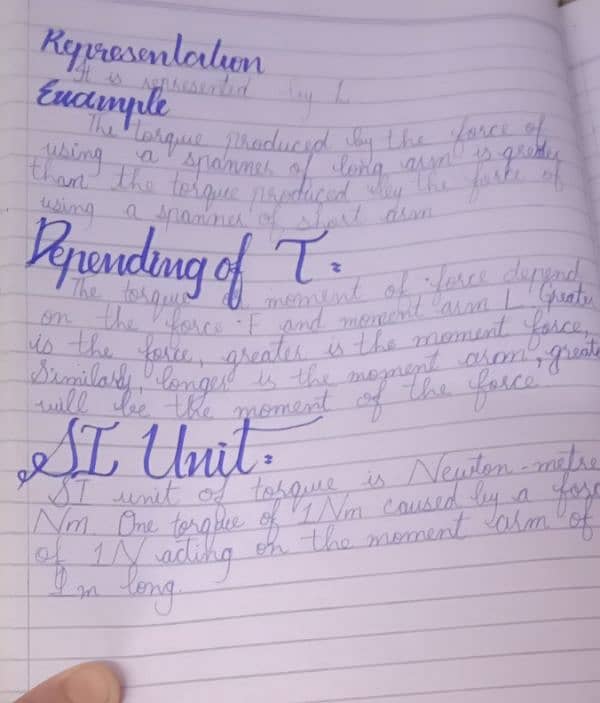 Representation
It is represented by L
Example
The torque produced by the force of
using a spanner of long arm is greater
than the torque produced by the force of
using a spanner of short arm
Depending of τ:
The torque or moment of force depend
on the force F and moment arm L Greater
is the force, greater is the moment force,
Similarly, longer is the moment arm, greate
will be the moment of the force
SI Unit:
SI unit of torque is Newton-metre
Nm. One torque of 1Nm caused by a forc
of 1N acting on the moment arm of
1m long.